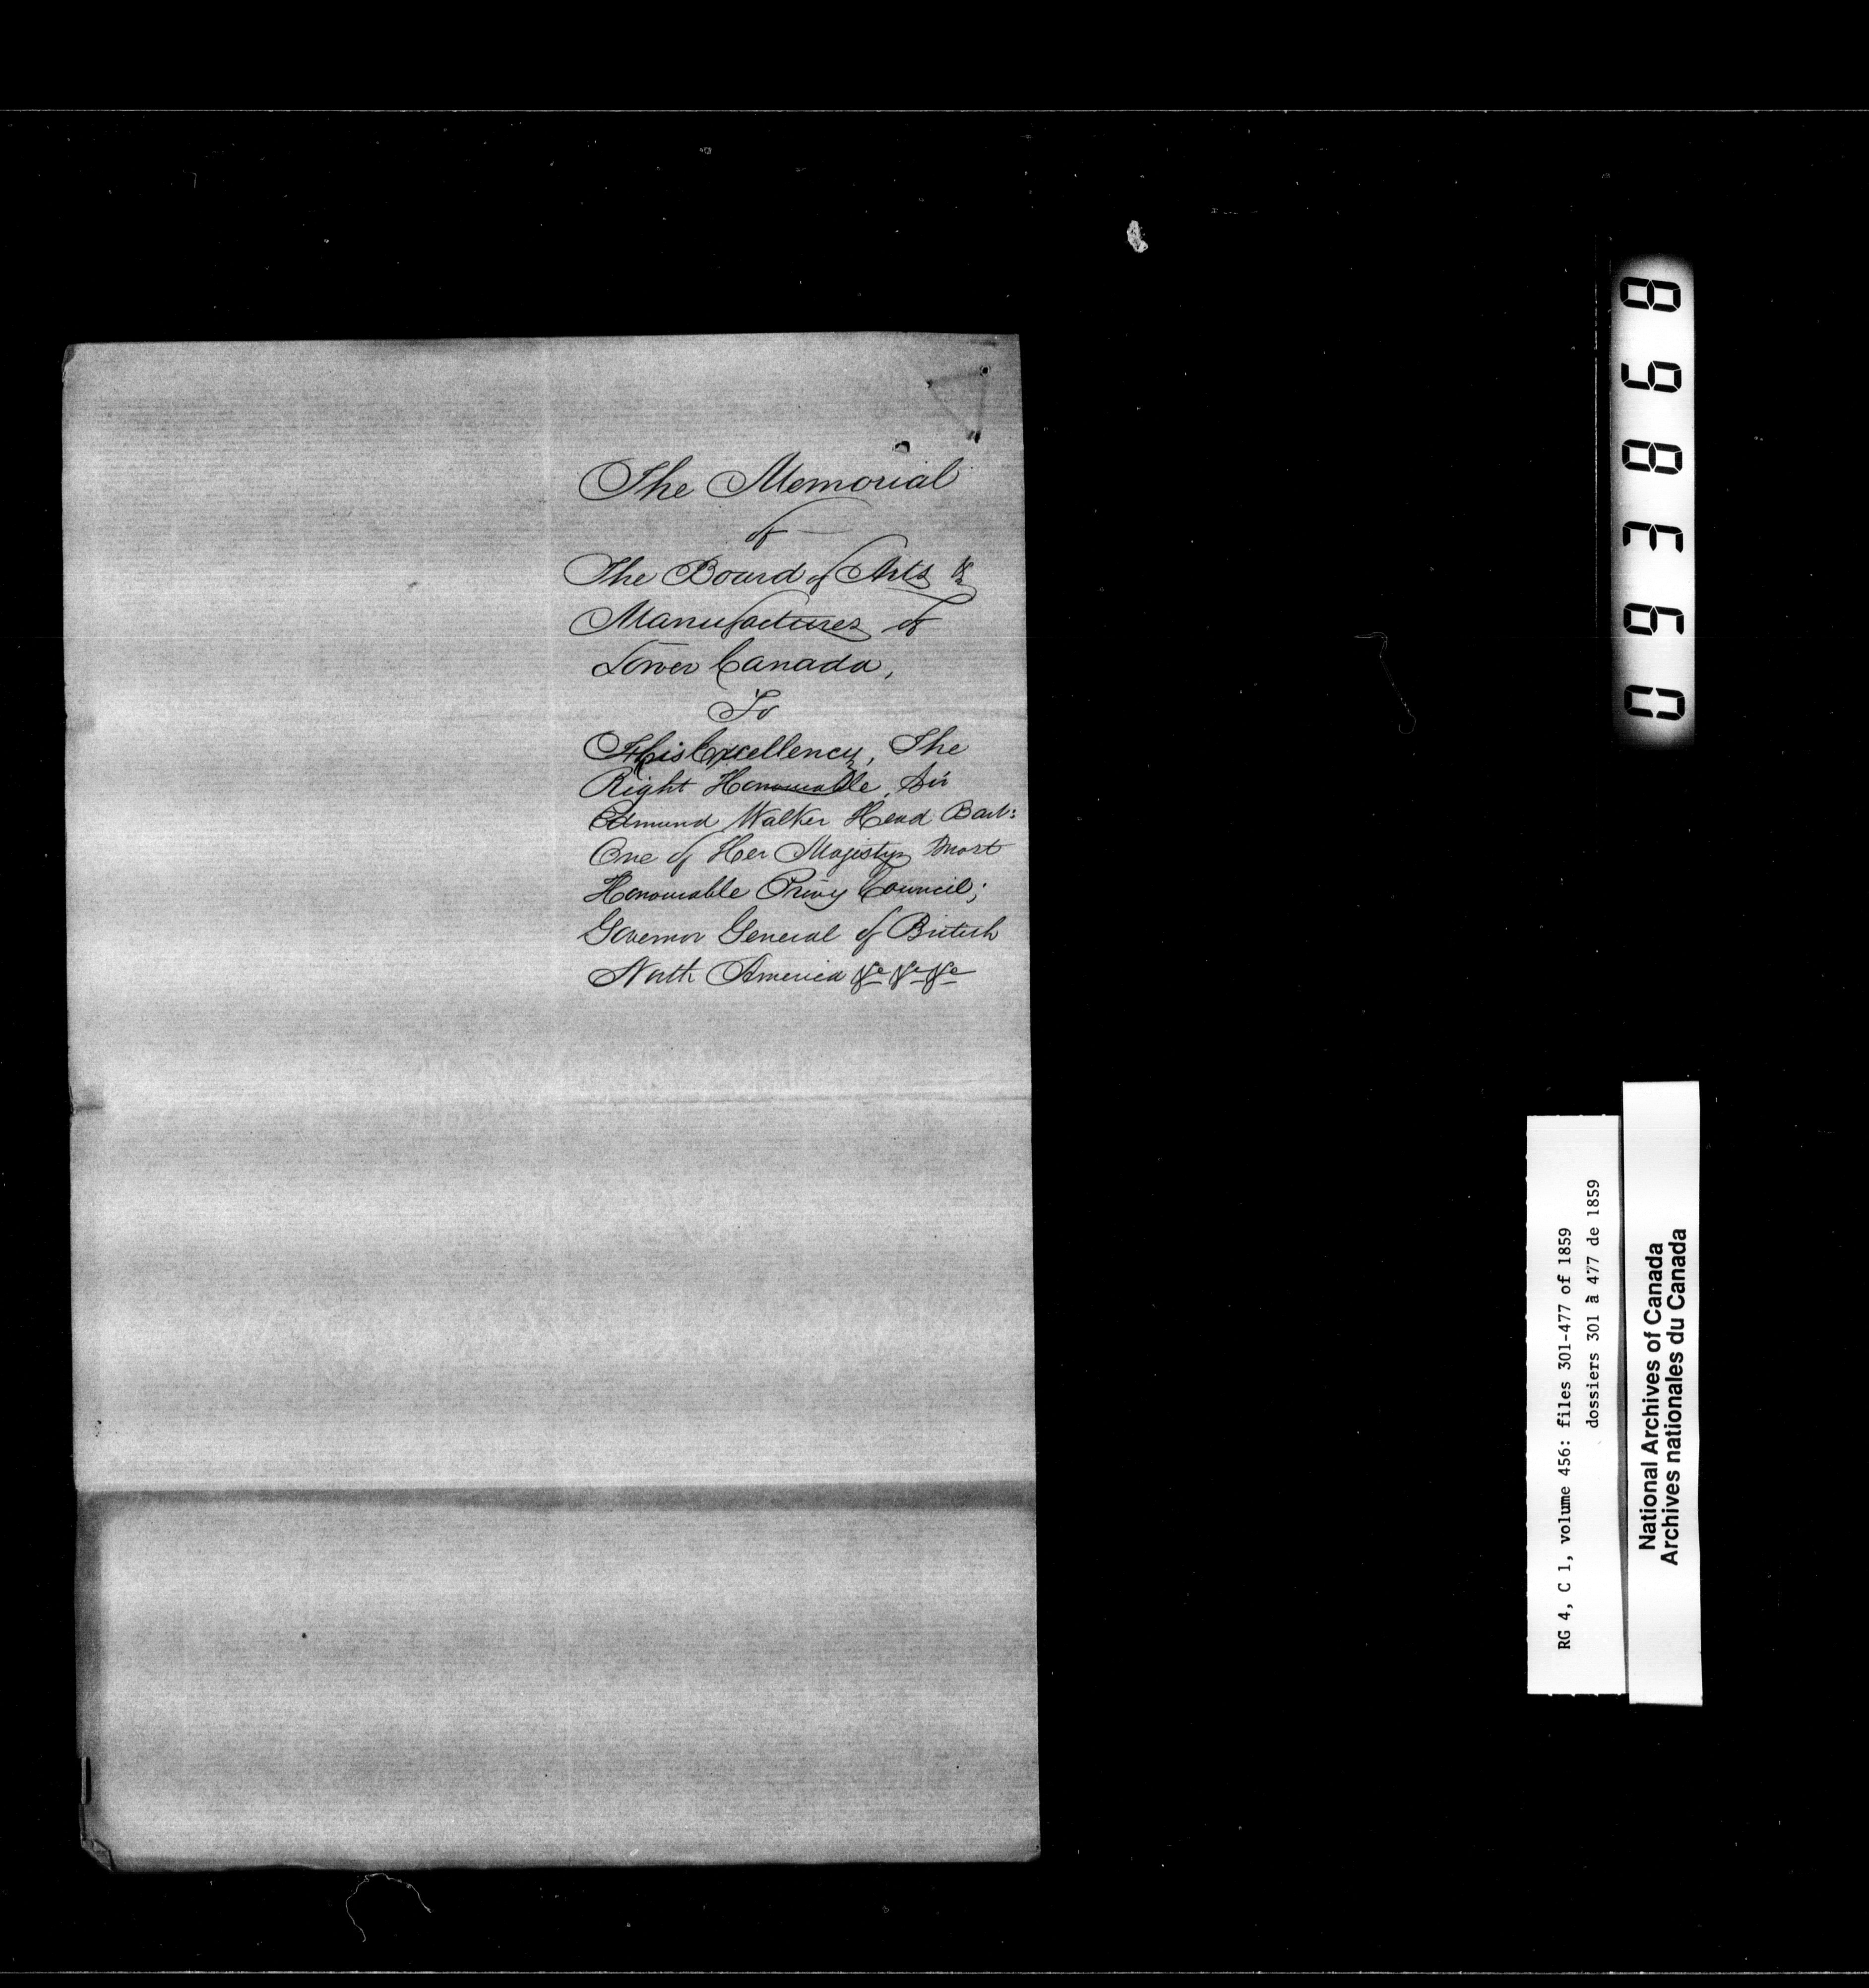 The Memorial
of
The Board of Arts &
Manufactures of
Lower Canada,
To
His Excellency, The
Right Honourable, Sir
Edmund Walker Head Bart:
One of Her Majestys Most
Honourable Privy Council;
Governor General of British
North America &c &c &c
093868
RG 4, C 1, volume 456: files 301-477 of 1859
dossiers 301 à 477 de 1859
National Archives of Canada
Archives nationales du Canada